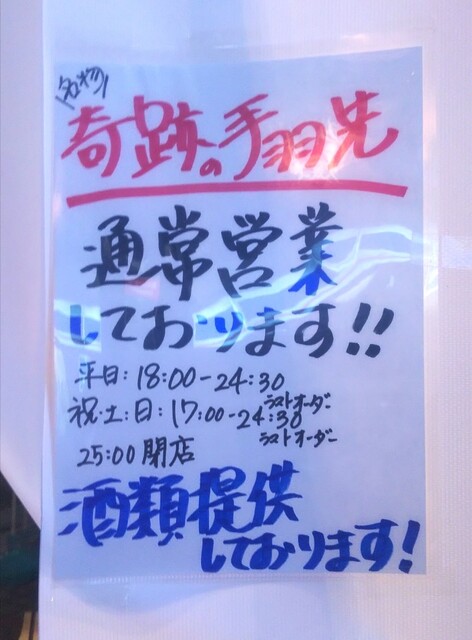 名物
奇跡の手羽先
通常営業
しております!!
平日:18:00-24:30
ラストオーダー
祝・土・日:17:00-24:30
ラストオーダー
25:00閉店
酒類提供
しております!